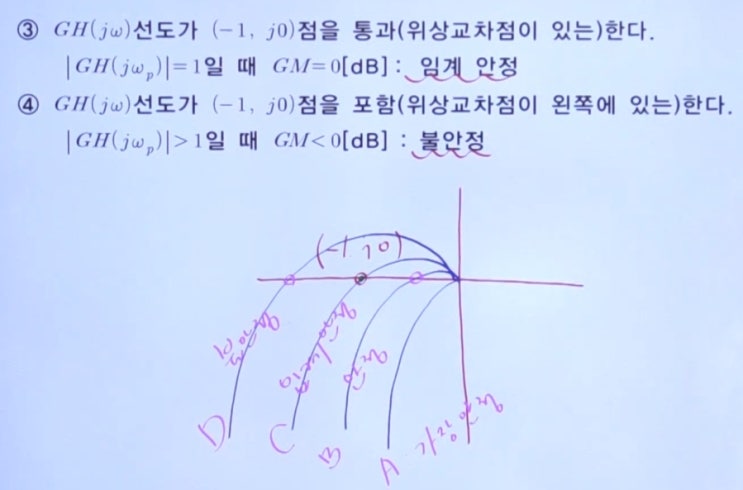 ③ GH(jω)선도가 (-1, j0)점을 통과(위상교차점이 있는)한다.
|GH(jωₚ)|=1일 때 GM=0[dB] : 임계 안정
④ GH(jω)선도가 (-1, j0)점을 포함(위상교차점이 왼쪽에 있는)한다.
|GH(jωₚ)|>1일 때 GM<0[dB] : 불안정
(-1 j0)
불안정
임계안정
안정
가장안정
D
C
B
A